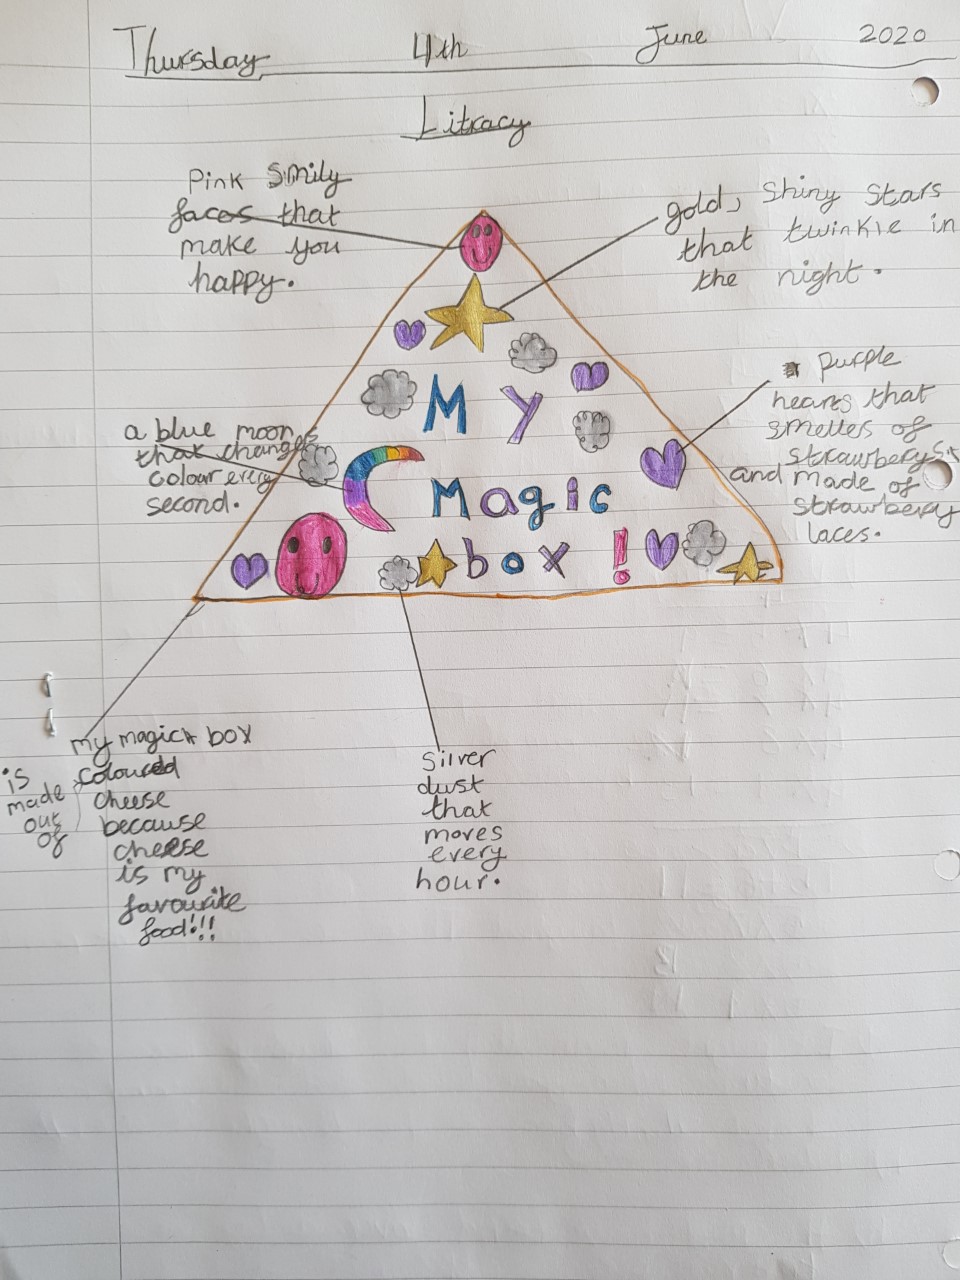 Thursday 4th June 2020
Litracy
Pink Smily
faces that
make you
happy.
gold, Shiny Stars
that twinkle in
the night.
a blue moon
that changes
colour every
second.
purple
hearts that
smelles of
strawberys
and made of
strawberry
laces.
My
Magic
box !
my magic box
is made out of coloured
cheese
because
cheese
is my
favourite
food!!!
Silver
dust
that
moves
every
hour.